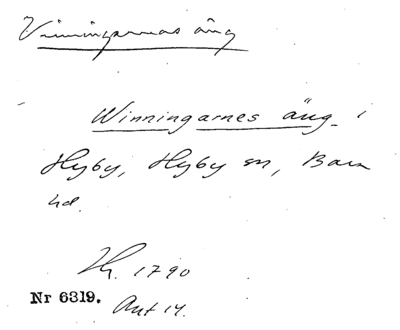 Vinningarnas äng
Winningarnes äng i
Hyby, Hyby sn, Bara
hd.
Lh. 1790
Nr 6319. Akt 14.